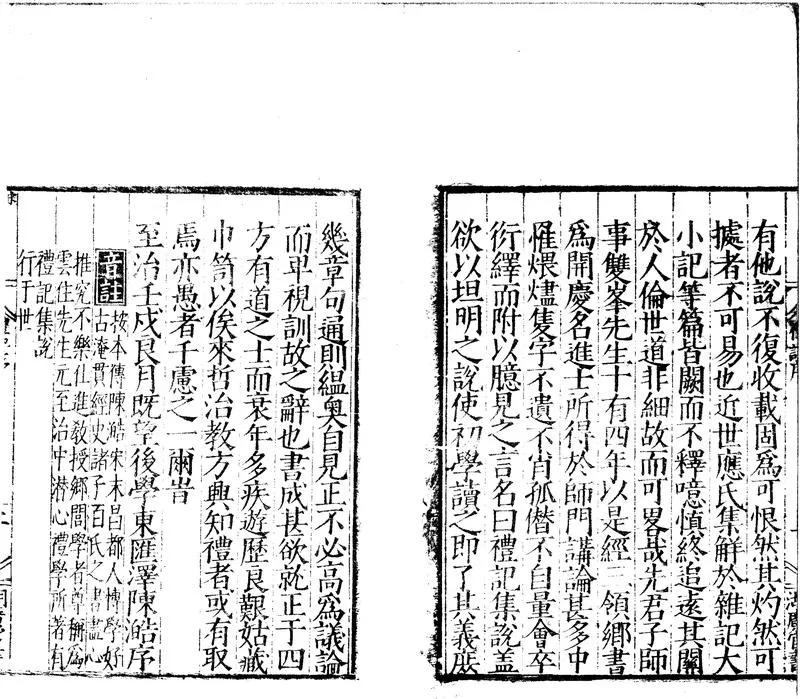 有他說不復收載固爲可恨然其灼然可
據者不可易也近世應氏集解於雜記大
小記等篇皆闕而不釋噫慎終追遠其關
於人倫世道非細故而可畧哉先君子師
事雙峯先生十有四年以是經三領鄉書
爲開慶名進士所得於師門講論甚多中
惟煨燼隻字不遺不肖孤僭不自量會卒
衍繹而附以臆見之言名曰禮記集說蓋
欲以坦明之說使初學讀之即了其義庶
幾章句通則縕奧自見正不必高爲議論
而卑視訓故之辭也書成甚欲就正于四
方有道之士而衰年多疾遊歷良艱姑藏
巾笥以俟來哲治教方興知禮者或有取
焉亦愚者千慮之一爾旹
至治壬戍良月既望後學東匯澤陳澔序
音註
按本傳陳澔宋末昌都人博學好
古淹貫經史諸子百氏之書盡心
推究不樂仕進敎授鄉閭學者尊稱爲
雲住先生元至治中潜心禮學所著有
禮記集說
行于世